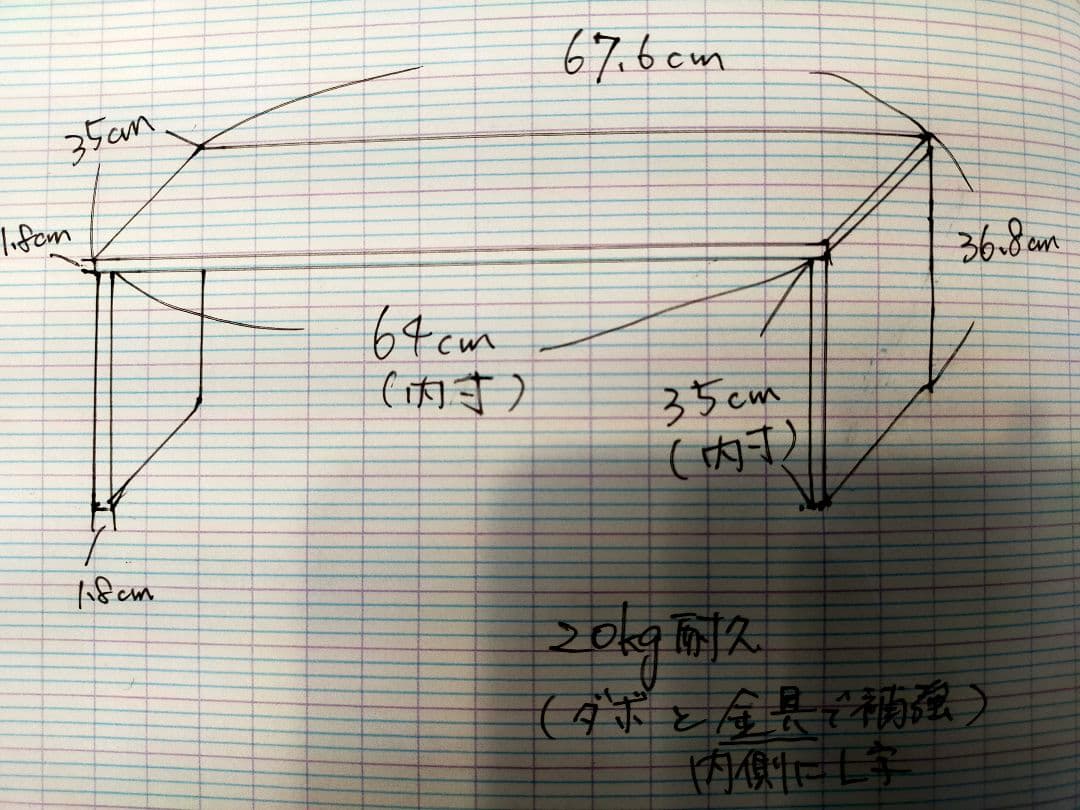 67.6cm
35cm
1.8cm
36.8cm
64cm
(内寸)
35cm
(内寸)
1.8cm
20kg耐久
(ダボと金具で補強)
内側にL字